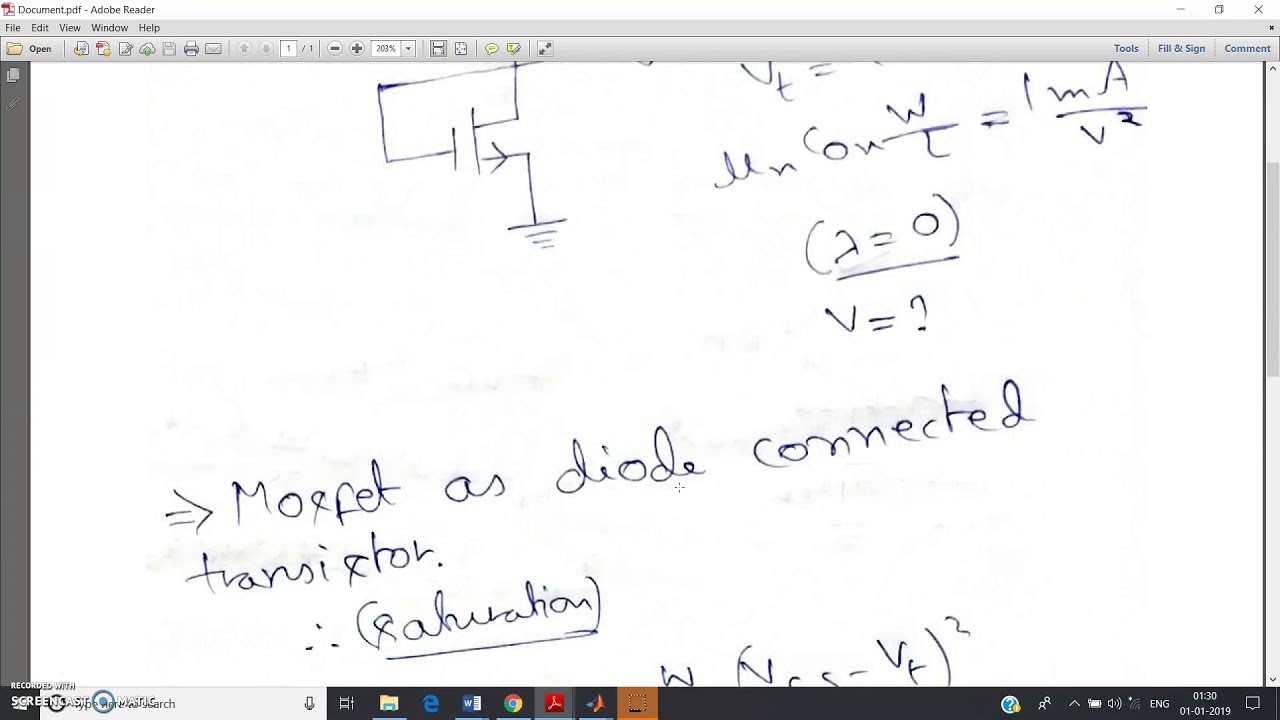 Document.pdf - Adobe Reader
File Edit View Window Help
Open 1 / 1 203% Tools Fill & Sign Comment
Vt =
μn Cox W/L = 1 mA/V²
(λ = 0)
V = ?
⇒ Mosfet as diode connected
transistor.
∴ (saturation)
W (VGS - Vt)²
RECORDED WITH
SCREENCAST MATIC
Type here to search
ENG
01:30
01-01-2019